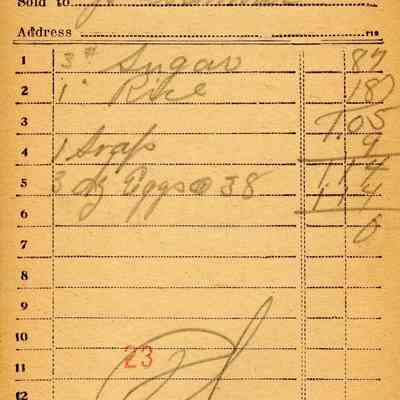 Sold to
Address
1 3# Sugar 87
2 1" Rice 18
3 1.05
4 1 Soap 9
1 14
5 3 dz Eggs @ 38 1 14
6 0
7
8
9
10
11 23
12